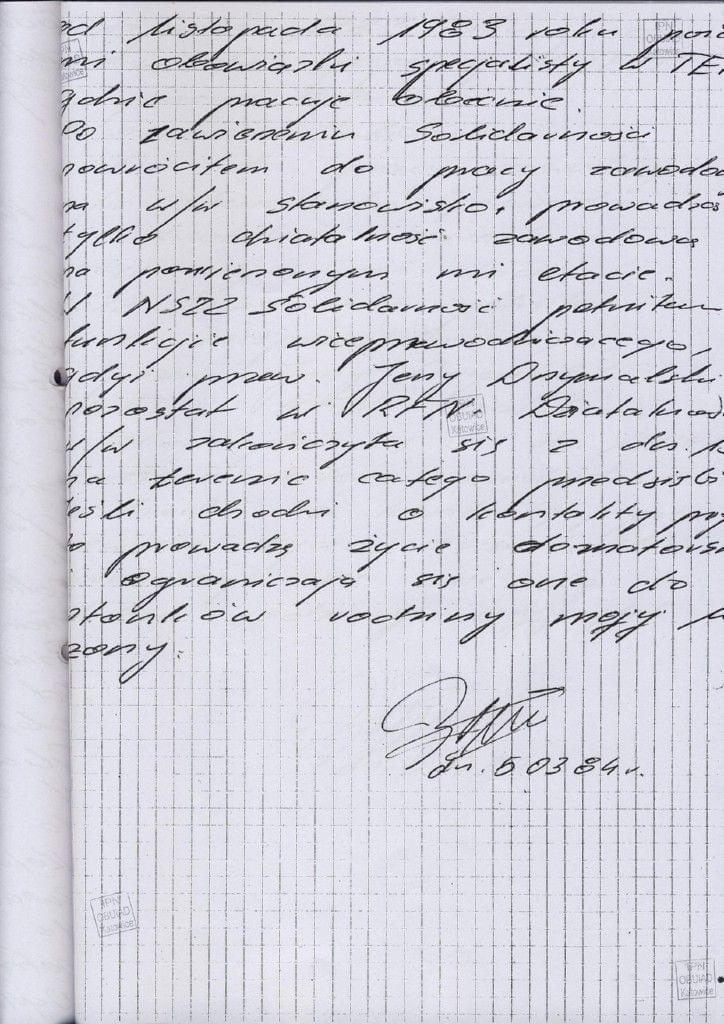 od listopada 1983 roku
mi obowiązki specjalisty w TE
gdzie pracuję obecnie.
Po zawieszeniu Solidarności
powróciłem do pracy zawodo
na w/w stanowisko, prowadzą
tylko działalność zawodową
na powierzonym mi etacie.
W NSZZ Solidarność pełniłem
funkcje wiceprzewodniczącego,
gdyż przew. Jerzy Drzymalski
pozostał w Działalność
w/w zakończyła się z dn. 1
na terenie całego
jeśli chodzi o kontakty
to prowadzę życie domatorsk
i ograniczają się one do
stonków rodziny mojej i
żony.
dn. 5 03 84 r.
IPN
OBUiAD
Katowice
IPN
OBUiAD
Katowice
IPN
OBUiAD
Katowice